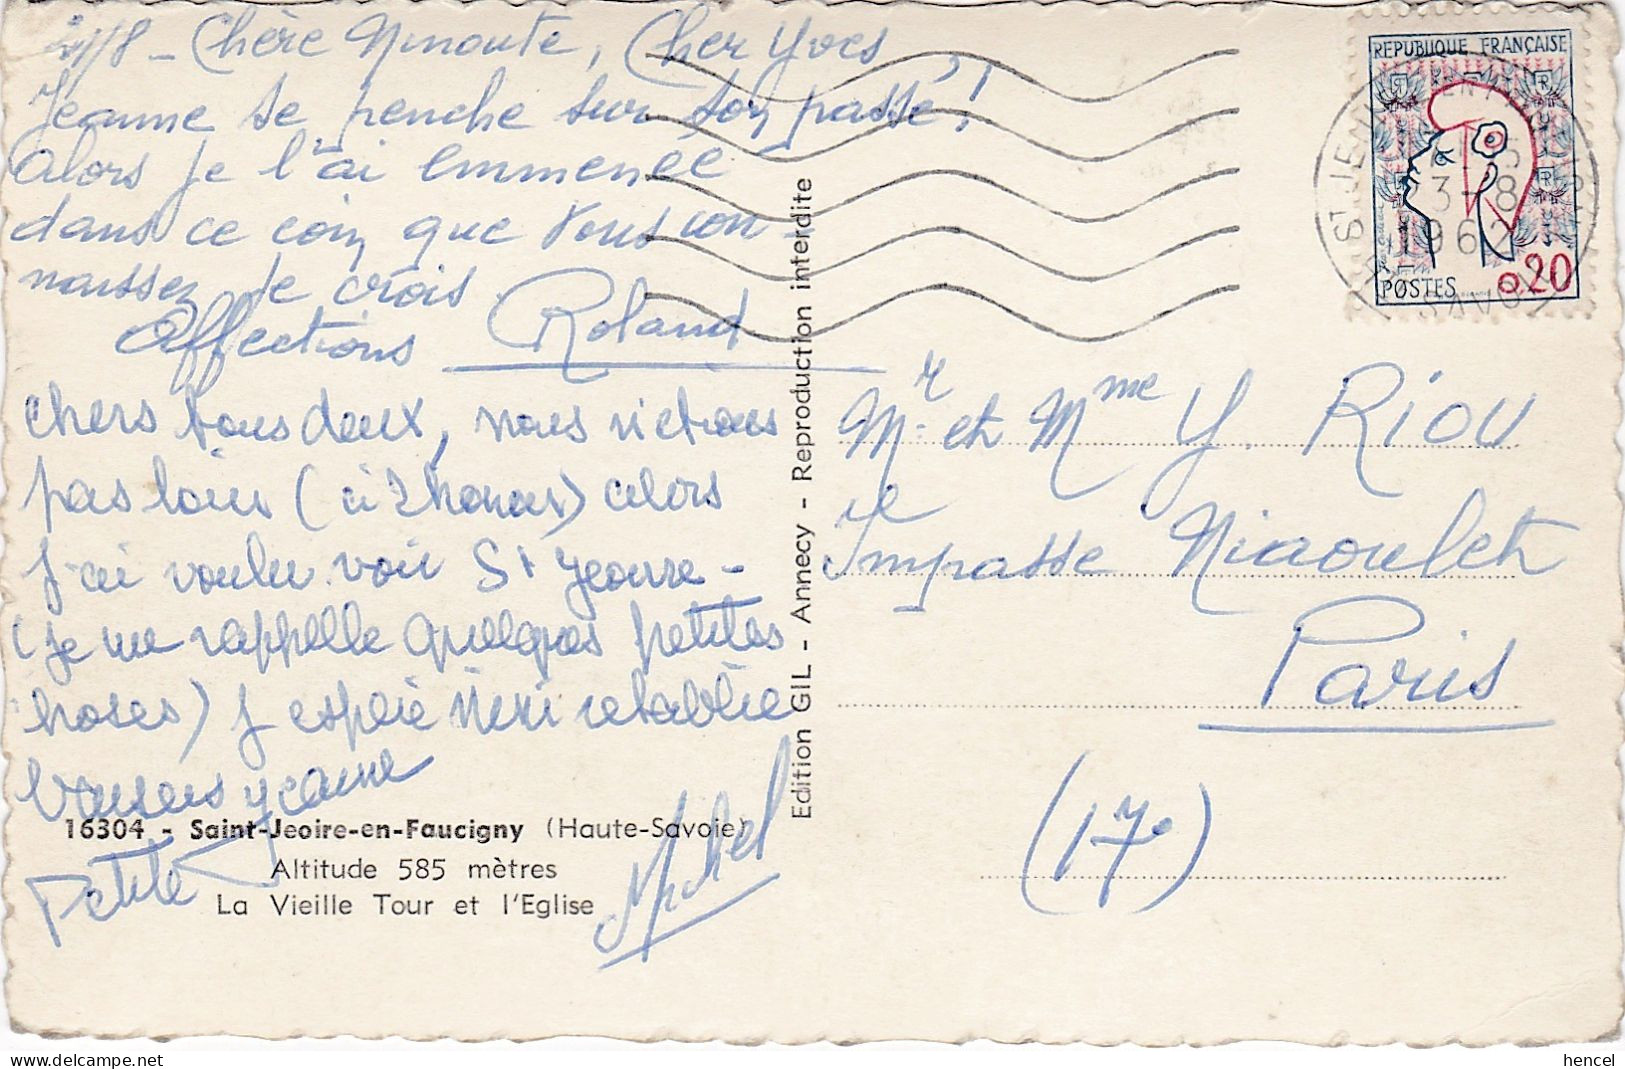 Chère Ninoute, Cher Yves,
Jeanne se penche sur son passé!
Alors je l'ai emmenée
dans ce coin que vous con-
naissez je crois.
Affections Roland
Chers tous deux, nous n'étions
pas loin (à 2 heures) alors
j'ai voulu voir St Jeoire -
(je me rappelle quelques petites
choses) j'espère rétablie
Baisers Jeanne
Petite Michel
16304 - Saint-Jeoire-en-Faucigny (Haute-Savoie)
Altitude 585 mètres
La Vieille Tour et l'Eglise
Edition GIL - Annecy - Reproduction interdite
REPUBLIQUE FRANÇAISE
POSTES 0,20
ST JEOIRE
3-8
1962
SAVOIE
Mr et Mme Y. RIOU
Impasse
Paris
(17e)
hencel
delcampe.net